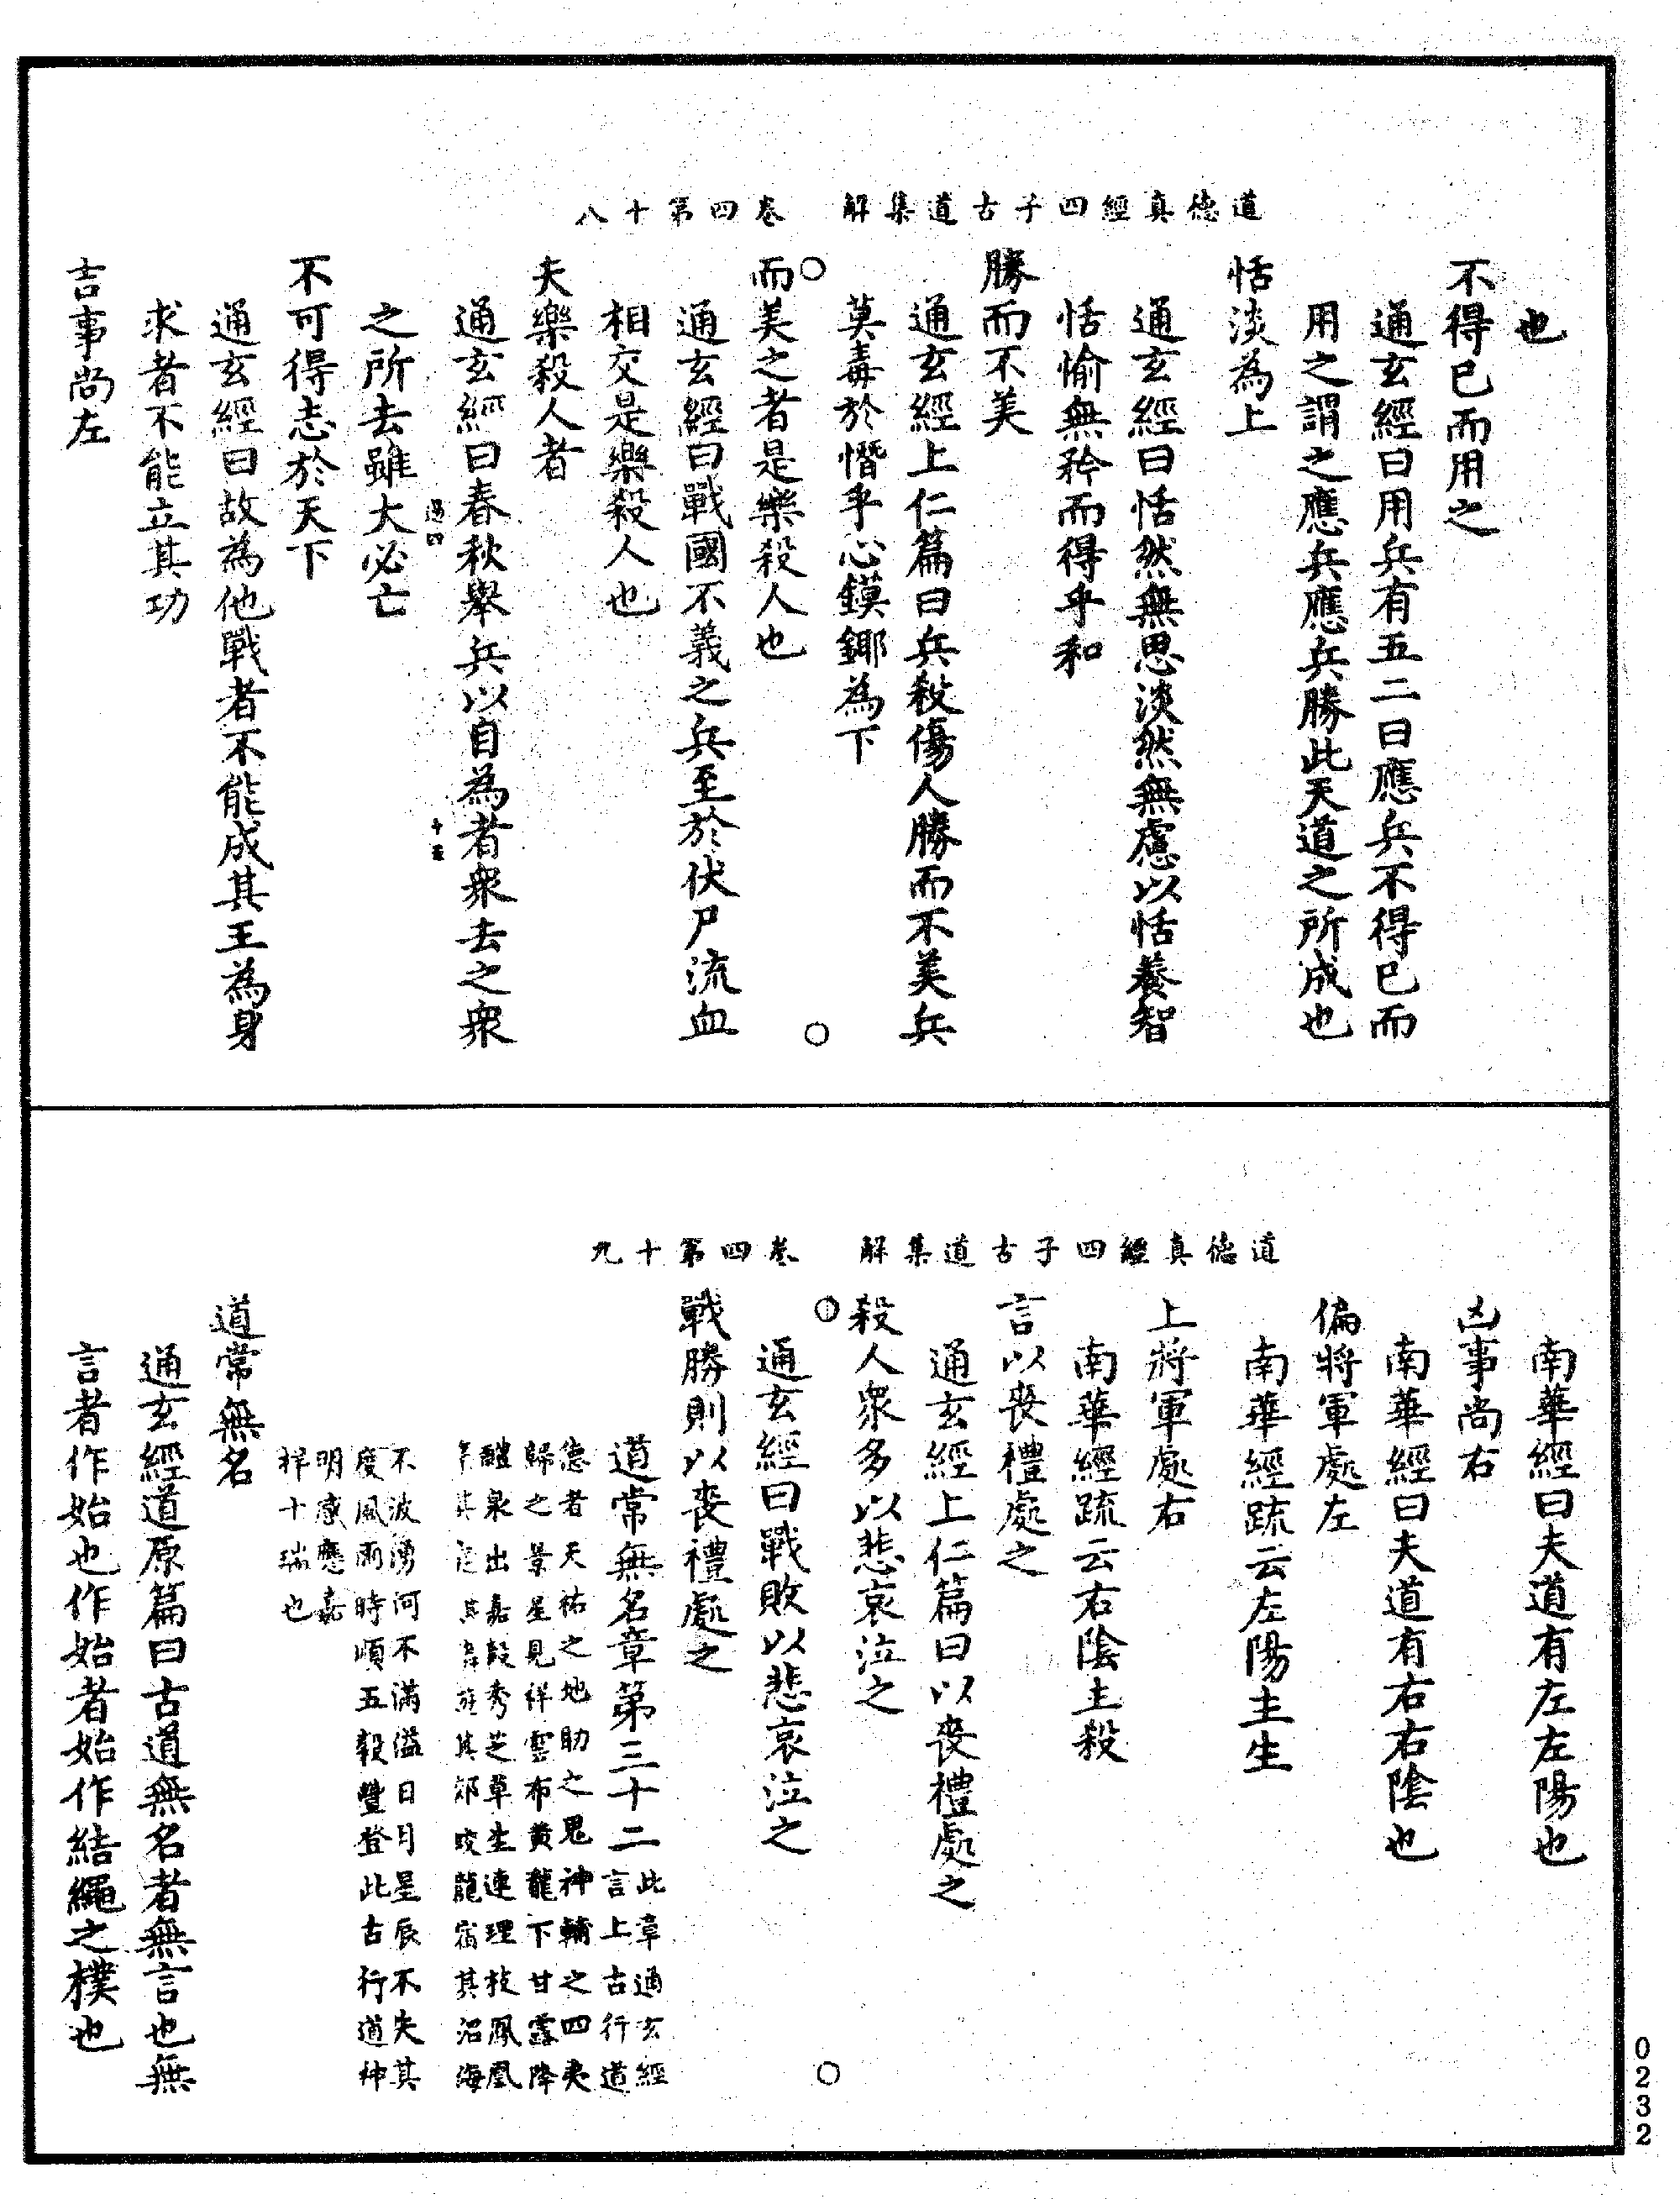 道德真經四子古道集解　卷四第十八
也
不得已而用之
通玄經曰用兵有五二曰應兵不得已而
用之謂之應兵應兵勝此天道之所成也
恬淡為上
通玄經曰恬然無思淡然無慮以恬養智
恬愉無矜而得乎和
勝而不美
通玄經上仁篇曰兵殺傷人勝而不美兵
莫毒於憯乎心鏌鎁為下
而美之者是樂殺人也
通玄經曰戰國不義之兵至於伏尸流血
相交是樂殺人也
夫樂殺人者
通玄經曰春秋舉兵以自為者衆去之衆
過四　十五
之所去雖大必亡
不可得志於天下
通玄經曰故為他戰者不能成其王為身
求者不能立其功
吉事尚左
道德真經四子古道集解　卷四第十九
南華經曰夫道有左左陽也
凶事尚右
南華經曰夫道有右右陰也
偏將軍處左
南華經疏云左陽主生
上將軍處右
南華經疏云右陰主殺
言以喪禮處之
通玄經上仁篇曰以喪禮處之
殺人衆多以悲哀泣之
通玄經曰戰敗以悲哀泣之
戰勝則以喪禮處之
道常無名章第三十二此章通玄經
言上古行道
德者天祐之地助之鬼神輔之四夷
歸之景星見祥雲布黃龍下甘露降
醴泉出嘉穀秀芝草生連理枝鳳凰
其庭其遊其郊蛟龍宿其沼海
不波湧河不滿溢日月星辰不失其
度風雨時順五穀豐登此古行道神
明感應嘉
祥十瑞也
道常無名
通玄經道原篇曰古道無名者無言也無
言者作始也作始者始作結繩之樸也
0232